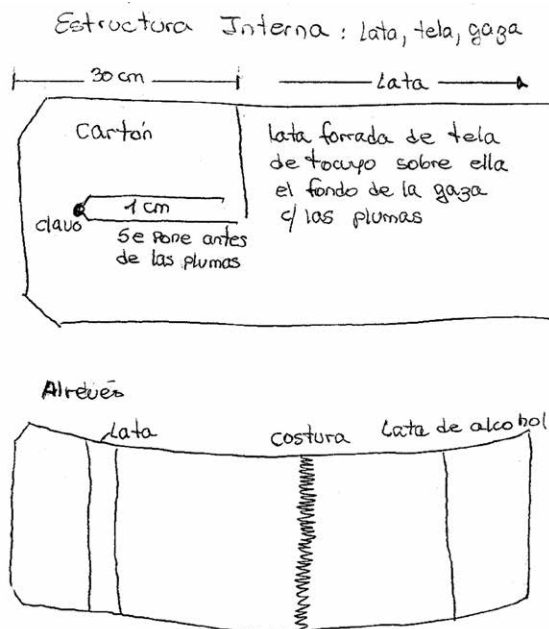 Estructura Interna: lata, tela, gaza
30 cm
Lata
Cartón
lata forrada de tela
de tocuyo sobre ella
el fondo de la gaza
c/ las plumas
1 cm
clavo
Se pone antes
de las plumas
Alrevés
Lata
costura
Lata de alcohol